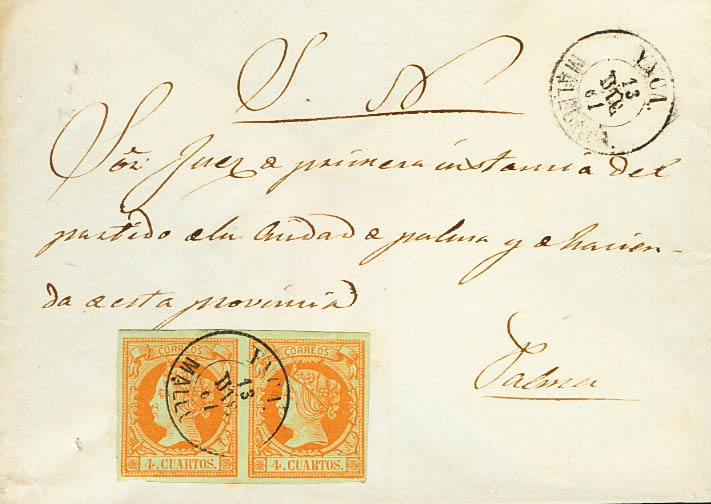 S. N.
YNCA.
13
DIC
61
Sõr. Juez de primera instancia del
partido de la Ciudad de palma y de hacien-
da de esta provincia
Palma
CORREOS CORREOS
YNCA.
13
DIC
61
4. CUARTOS. 4. CUARTOS.